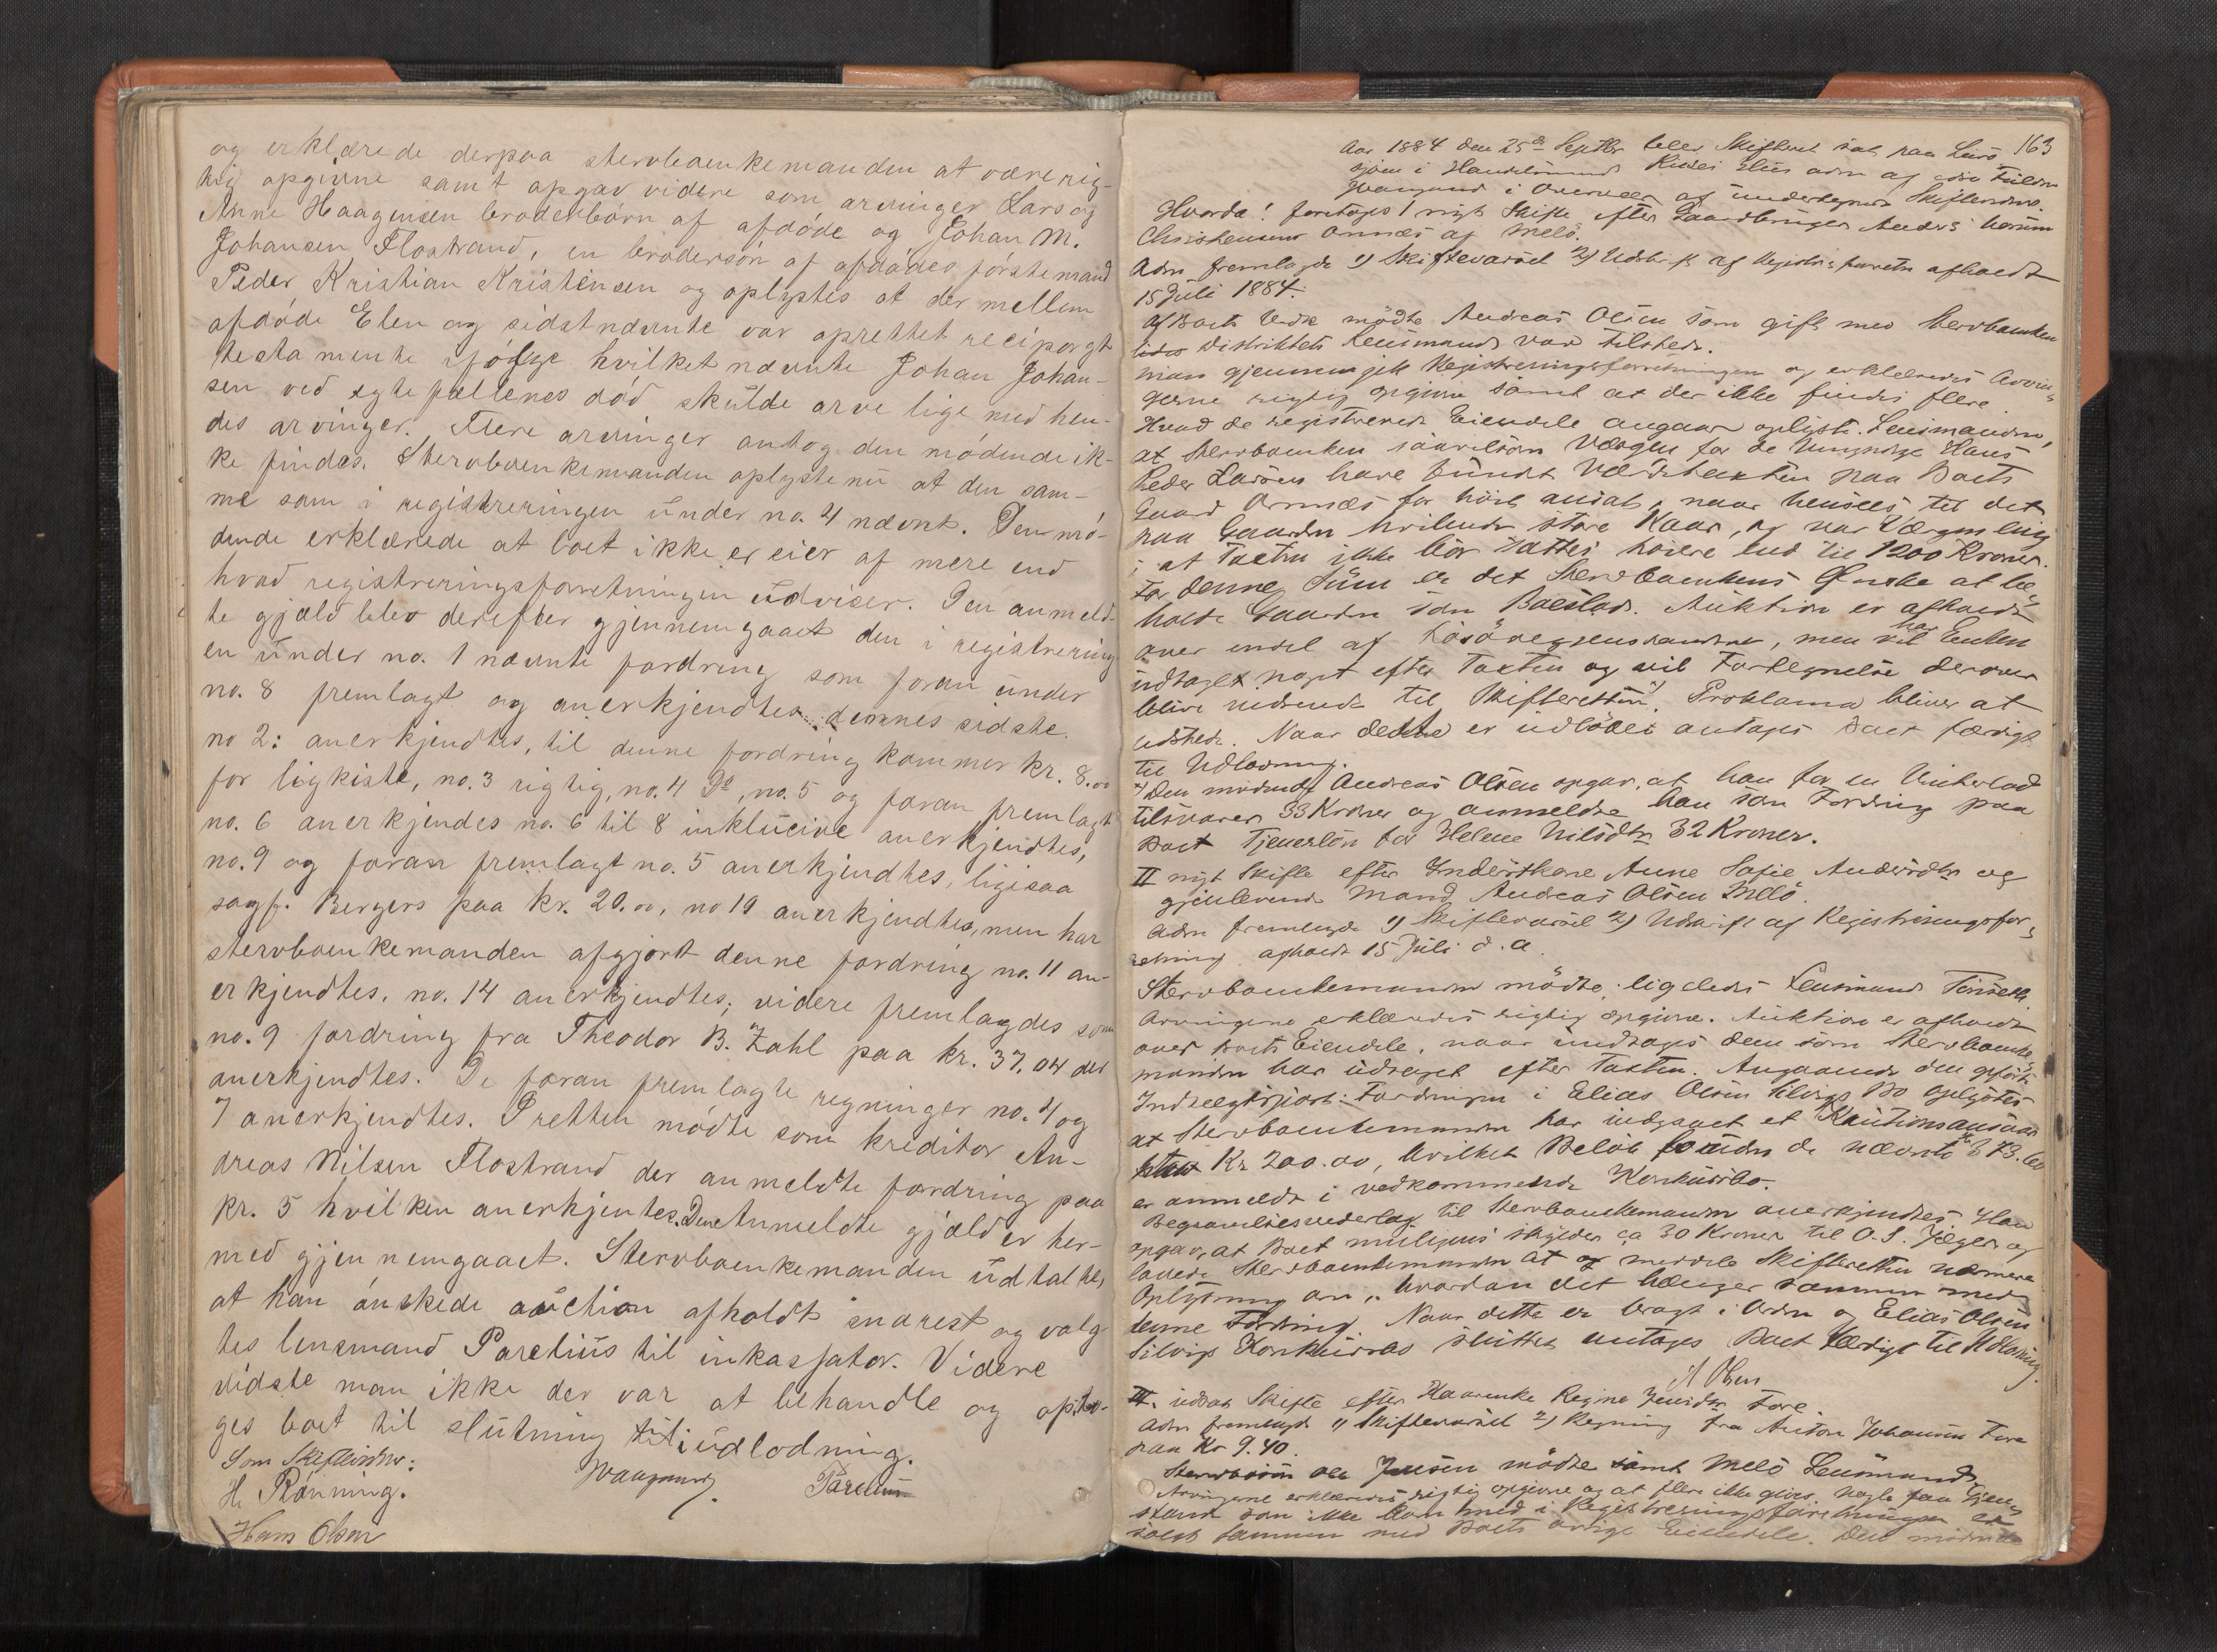 og erklærede derpaa stervboenkemanden at være rig-
tig opgivne samt opgav videre som arvinger Lars og
Anne Haagensen broderbørn af afdøde og Johan M.
Johansen Flostrand, en brodersøn af afdødes første mand
Peder Kristian Kristensen og oplystes at der mellem
afdøde Elen og sidstnævnte var oprettet reciporgt
testamente ifølge hvilket nævnte Johan Johan-
sen ved egtefællenes død skulde arve lige med hen-
des arvinger. Flere arvinger antog den mødende ik-
ke findes. Stervboenkemanden oplyste nu at den sam-
me som i registreringen under no. 4 nævnt. Den mø-
dende erklærede at boet ikke er eier af mere end
hvad registreringsforretningen udviser. Den anmeld-
te gjæld blev derefter gjennemgaaet den i registrering
en under no. 1 nævnte fordring som foran under
no. 8 fremlagt og anerkjendtes dennes sidste.
no 2: anerkjendtes, til denne fordring kommer kr. 8.00
for ligkiste, no. 3 rigtig, no. 4 Do, no. 5 og foran fremlagt
no. 6 anerkjendes no. 6 til 8 inklusive anerkjendtes,
no. 9 og foran fremlagt no. 5 anerkjendtes, ligesaa
sagf. Bergers paa kr. 20.00, no 10 anerkjendtes, men har
stervboenkemanden afgjort denne fordring no. 11 an-
erkjendtes, no. 14 anerkjendtes; videre fremlagdes som
no. 9 fordring fra Theodor B. Zahl paa kr. 37,04 der
anerkjendtes. De foran fremlagte regninger no. 4 og
7 anerkjendtes. I retten mødte som kreditor An-
dreas Nilsen Flostrand der anmeldte fordring paa
kr. 5 hvilken anerkjentes. Den Anmeldte gjæld er her-
med gjennemgaaet. Stervboenkemanden udtalte,
at han ønskede auction afholdt snarest og valg-
tes lensmand Parelius til inkassator. Videre
vidste man ikke der var at behandle og opto-
ges boet til slutning til udlodning.
Som Skiftevidner:
H. Rønning.
Parelius
Hans Olsen
163
Aar 1884 den 25de Septbr blev Skifteret sat paa
i Overvær af undertegnede Skiftevidner.
Hvorda! foretoges I nyt Skifte efter Gaardbruger Anders
Christensen Ornæs af Melø.
Adm fremlagde 1) Skiftevarsel 2) Udskr. af afholdt
15 Juli 1884.
Af Boets Vedk mødte Andreas Olsen som gift med Stervboenken
Distriktets Lensmand var tilstede.
Man gjennemgik Registreringsforretningen og erklæredes Arvin-
gerne rigtig opgivne samt at der ikke findes flere.
Hvad de registrerede Eiendele angaar oplyste Lensmanden,
at Stervboenken saavelsom Værgen for de Umyndige Hans
Peder Larsen have fundet Værditaxten paa Boets
Gaard Ornæs for høit ansat, naar hensees til det
paa Gaarden hvilende store Kaar, og var Værgen enig
i at Taxten ikke bør sættes høiere end til 1200 Kroner.
For denne Sum er det Stervboenkens Ønske at be-
holde Gaarden som Boeslod. Auktion er afholdt
over endel af Løsøregjenstandene, men har Enken
udtaget noget efter Taxten og vil Fortegnelse derover
blive indsendt til Skifteretten x). Proklama bliver at
udstede. Naar dette er udløbet antages Boet færdigt
til Udlodning.
x) Den mødende Andreas Olsen opgav, at han for en
tilsvarer 33 Kroner og anmeldte han som Fordring paa
Boet Tjenerløn for Helene Nilsdtr 32 Kroner.
II nyt Skifte efter Inderstkone Anne Sofie Andersdtr og
gjenlevende Mand Andreas Olsen Melø.
Adm fremlagde 1) Skiftevarsel 2) Udskrift af Registreringsfor-
retning afholdt 15 Juli d. A.
Stervboenkemanden mødte, ligeledes Lensmand
Arvingerne erklæredes rigtig opgivne. Auktion er afholdt
over Boets Eiendele, naar undtages dem som Stervboenke-
manden har udtaget efter Taxten. Angaaende den
Fordringen i Elias Olsen Silvigs Bo oplystes
at Stervboenkemanden har indgaaet et Kautionsansvar
Kr 200.00, hvilket Beløb de nævnte
er anmeldt i vedkommende Konkursbo.
Begravelsesvederlag til Stervboenkemanden anerkjendtes. Han
opgav, at Boet muligens skylder ca 30 Kroner til O. S. Jæger og
lovede Stervboenkemanden at meddele Skifteretten nærmere
Oplysning om, hvordan det hænger sammen med
denne Fordring. Naar dette er bragt i Orden og Elias Olsen
Silvigs Konkursbo sluttet antages Boet færdigt til Udlodning.
A Olsen
III. udsat Skifte efter Kaarenke Regine Jensdtr Fore.
Adm fremlagde 1) Skiftevarsel 2) Regning fra Anton Johansen Fore
paa Kr 9.40.
Ole Jensen mødte samt Melø Lensmand
Arvingerne erklæredes rigtig opgivne og at flere ikke gives. Nogle faa Gjen-
stande som ikke kom med i Registreringsforretningen er
solgt sammen med Boets øvrige Eiendele. Den mødende